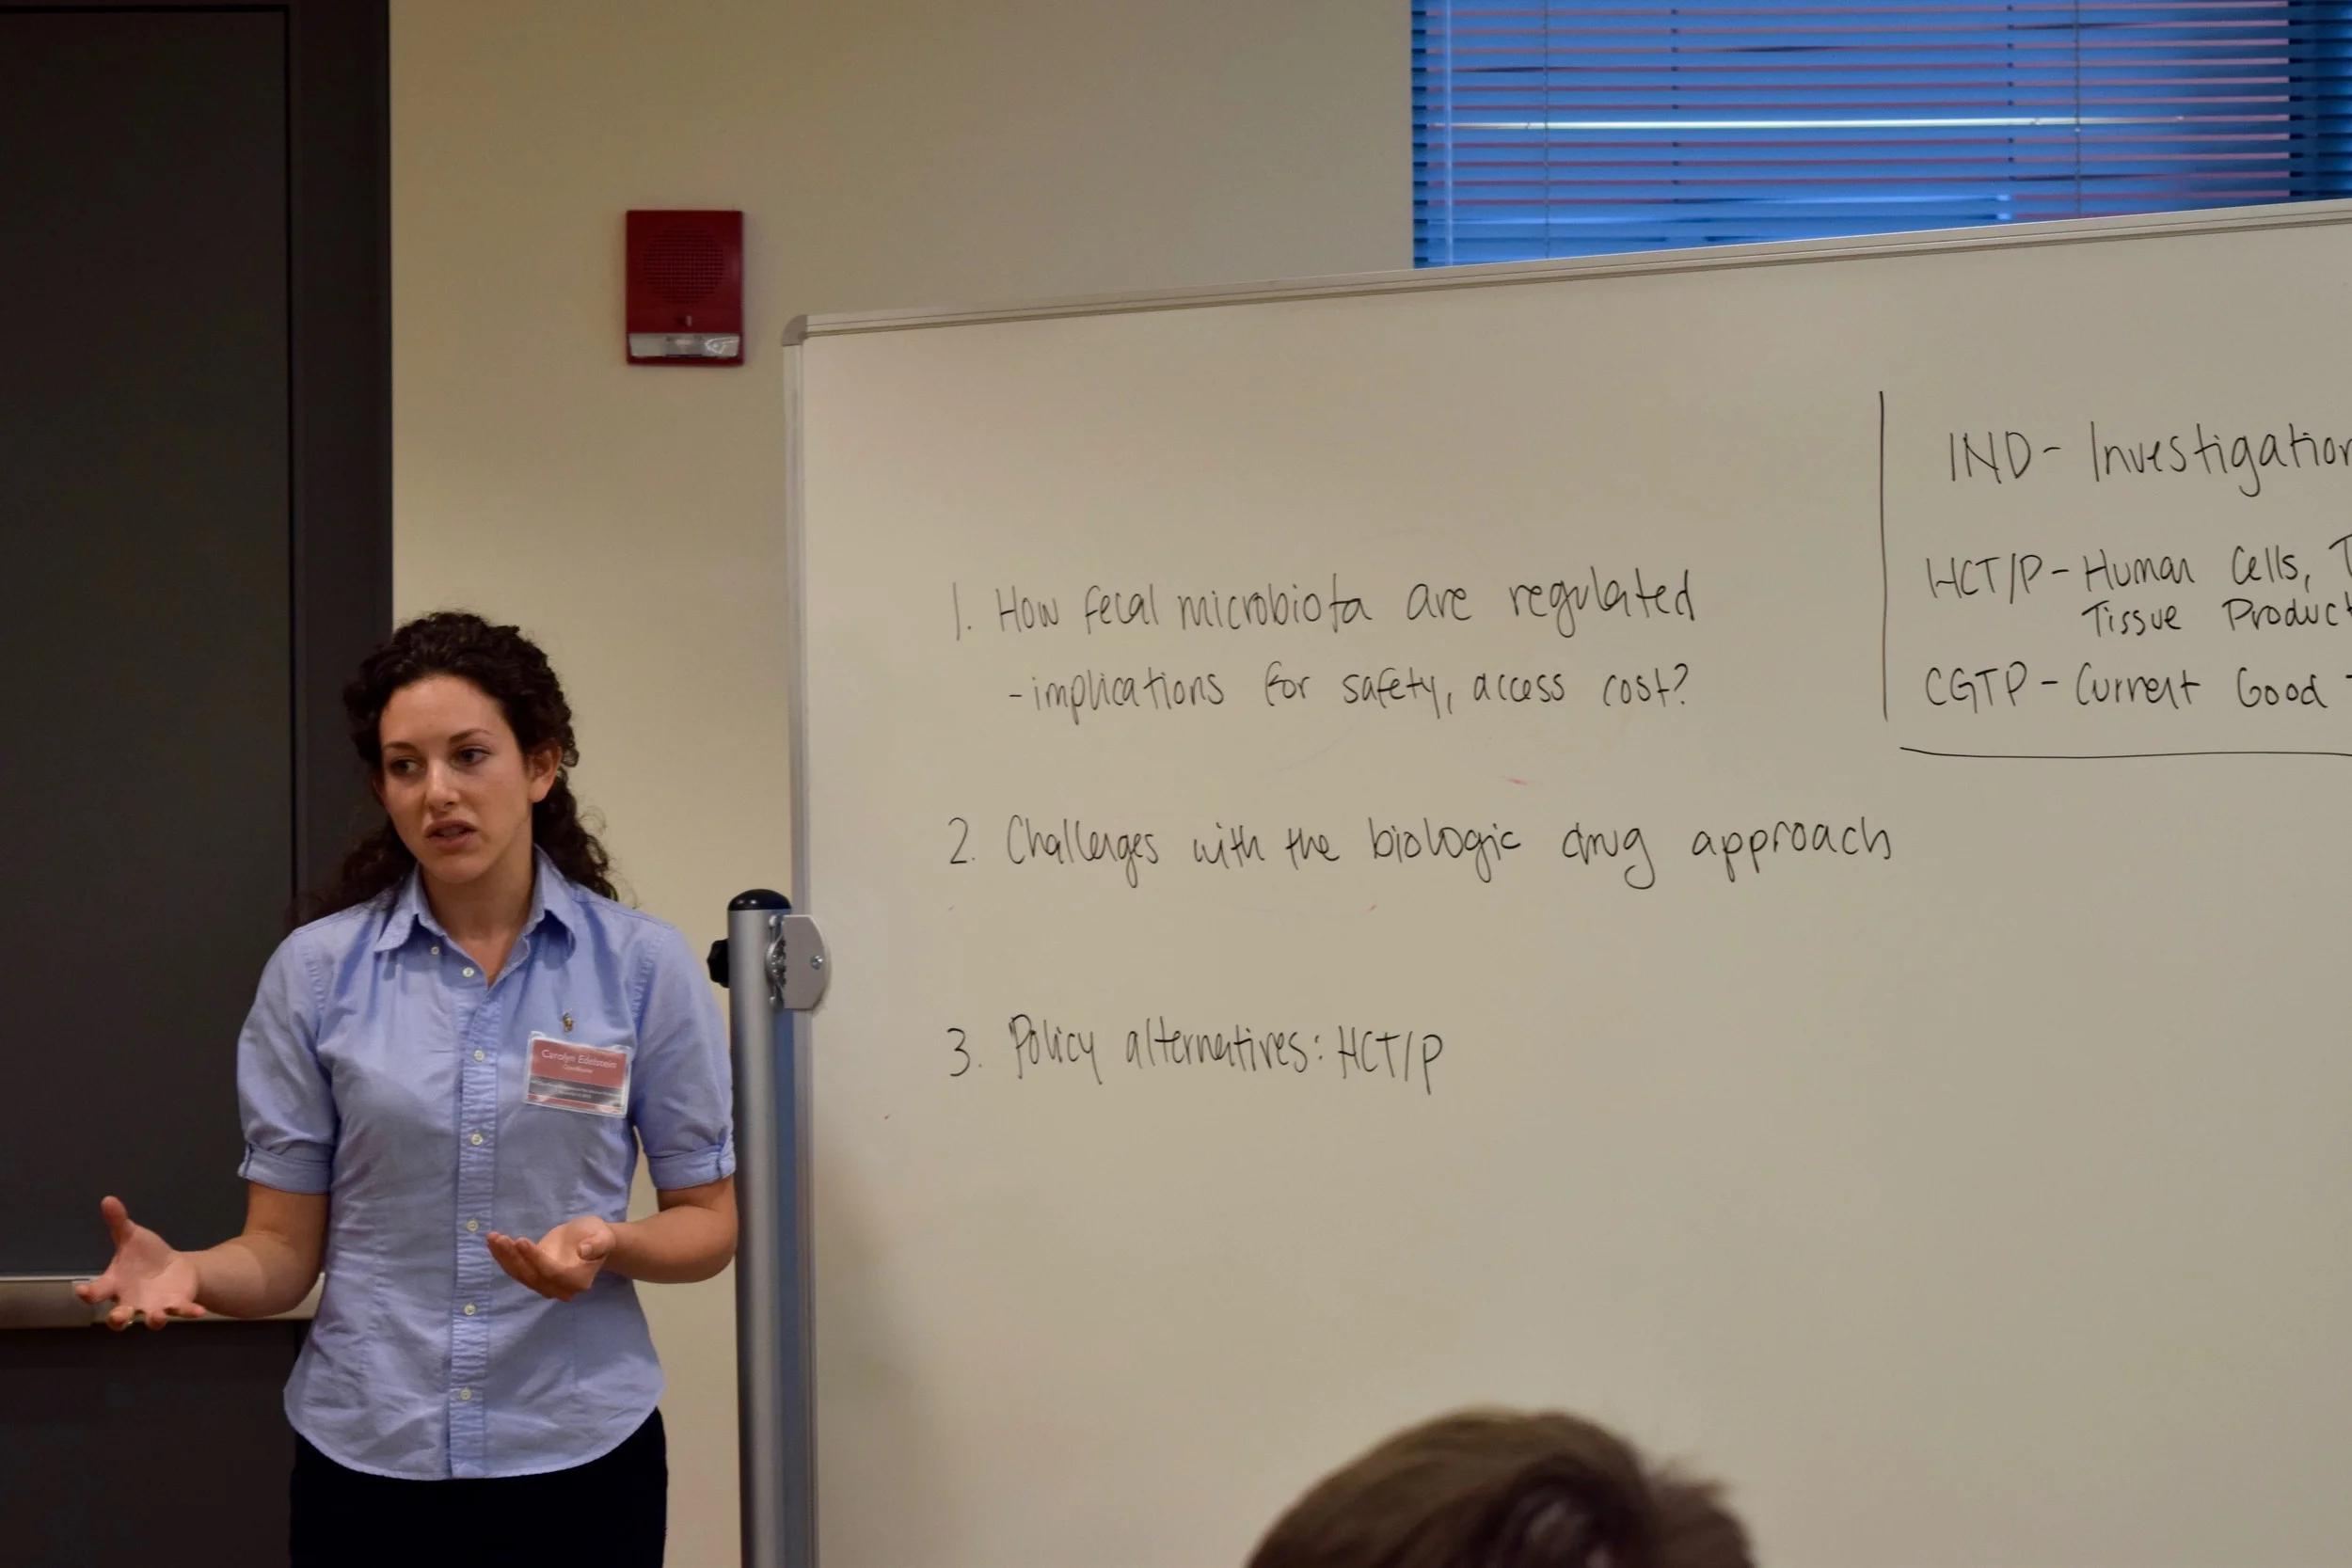 IND - Investigation
HCT/P - Human Cells, T
Tissue Product
CGTP - Current Good
1. How fecal microbiota are regulated
- implications for safety, access cost?
2. Challenges with the biologic drug approach
3. Policy alternatives: HCT/P
Carolyn Edelstein